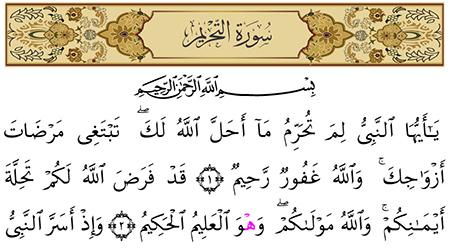 سُورَةُ التَّحْرِيمِ
بِسْمِ اللَّهِ الرَّحْمَٰنِ الرَّحِيمِ
يَـٰٓأَيُّهَا النَّبِىُّ لِمَ تُحَرِّمُ مَآ أَحَلَّ اللَّهُ لَكَ ۖ تَبْتَغِى مَرْضَاتَ
أَزْوَٰجِكَ ۚ وَاللَّهُ غَفُورٌ رَّحِيمٌ ﴿١﴾ قَدْ فَرَضَ اللَّهُ لَكُمْ تَحِلَّةَ
أَيْمَـٰنِكُمْ ۚ وَاللَّهُ مَوْلَىٰكُمْ ۖ وَهُوَ الْعَلِيمُ الْحَكِيمُ ﴿٢﴾ وَإِذْ أَسَرَّ النَّبِىُّ